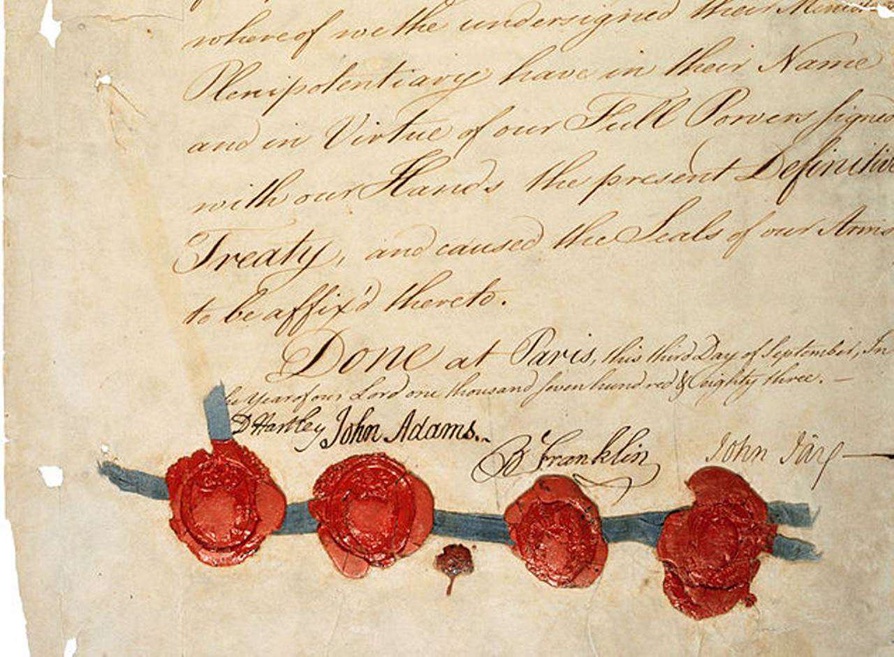 whereof we the undersigned their
Plenipotentiary have in their Name
and in Virtue of our Full Powers signed
with our Hands the present Definitive
Treaty, and caused the Seals of our Arms
to be affix'd thereto.
Done at Paris, this third Day of September, In
the Year of our Lord one thousand seven hundred & eighty three.—
D Hartley John Adams. B Franklin John Jay—